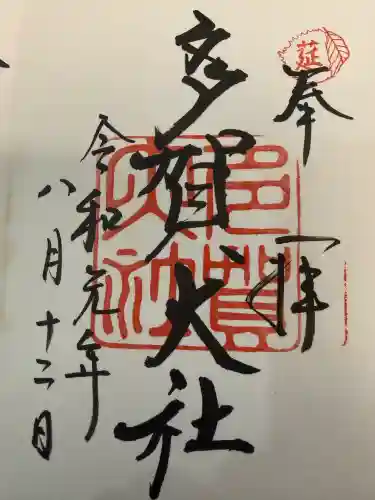 奉拝
莚
多賀大社
多賀大社
令和元年
八月十二日